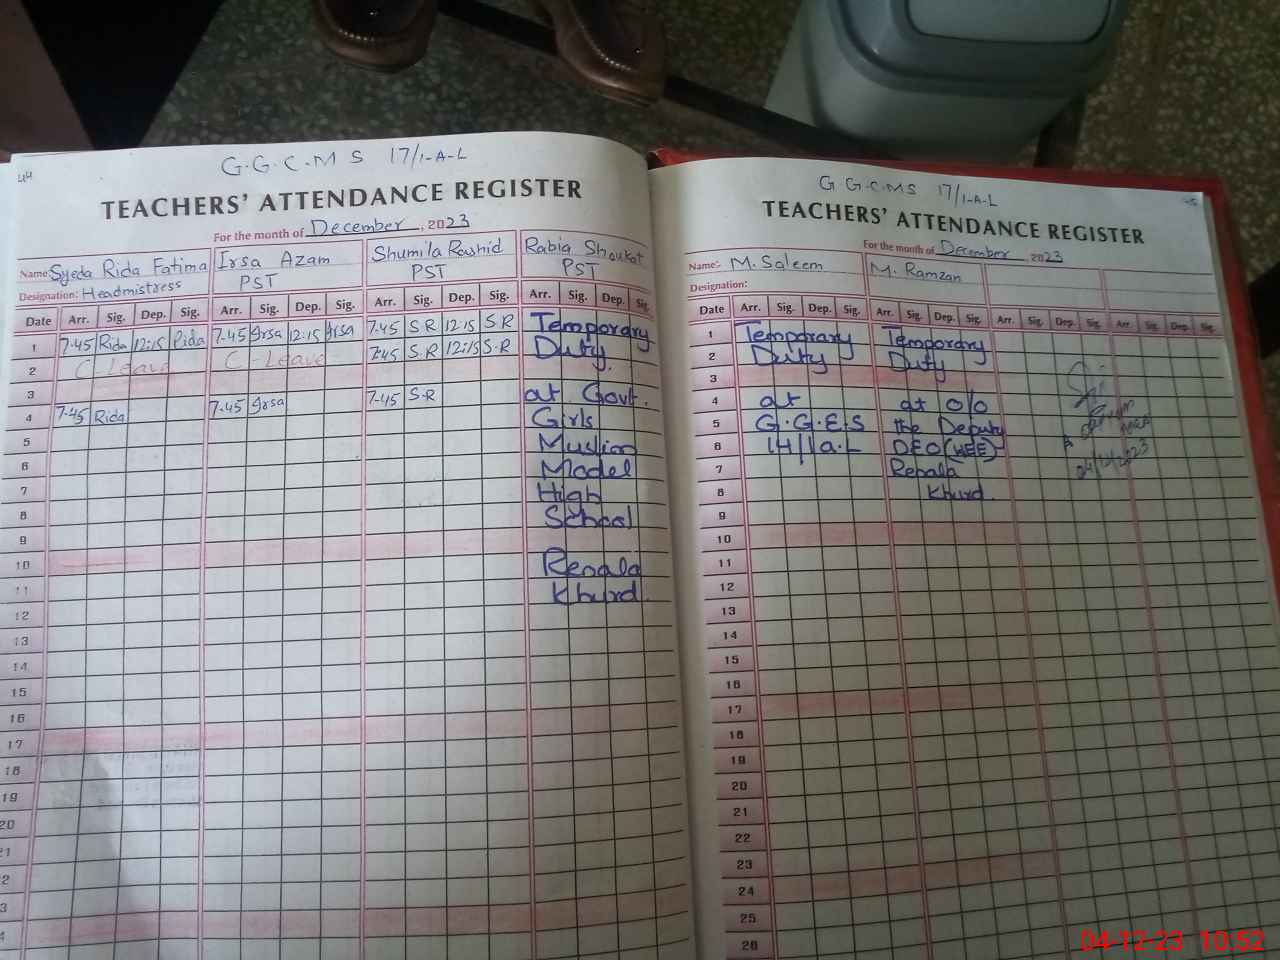 44
G.G.C.M S 17/1-A-L
TEACHERS' ATTENDANCE REGISTER
For the month of December, 2023
Name: Syeda Rida Fatima Irsa Azam Shumila Rashid Rabia Shoukat
Designation: Headmistress PST PST PST
Date Arr. Sig. Dep. Sig. Arr. Sig. Dep. Sig. Arr. Sig. Dep. Sig. Arr. Sig. Dep. Sig.
1 7.45 Rida 12:15 Rida 7.45 Irsa 12:15 Irsa 7.45 S.R 12:15 S.R Temporary
2 C-Leave C-Leave 7.45 S.R 12:15 S.R Duty.
3
4 7.45 Rida 7.45 Irsa 7.45 S.R at Govt.
5 Girls
6 Muslim
7 Model
8 High
9 School
10
11 Renala
12 Khurd.
13
14
15
16
17
18
19
20
21
2
3
4
45
G G.C.M S 17/1-A-L
TEACHERS' ATTENDANCE REGISTER
For the month of December, 2023
Name:- M. Saleem M. Ramzan
Designation:
Date Arr. Sig. Dep. Sig. Arr. Sig. Dep. Sig. Arr. Sig. Dep. Sig. Arr. Sig. Dep. Sig.
1 Temporary Temporary
2 Duty Duty
3
4 at at o/o
5 G.G.E.S the Deputy
6 1H/1a.L DEO (WEE)
7 Renala
8 Khurd.
9
10
11
12
13
14
15
16
17
18
19
20
21
22
23
24
25
26
04/12/2023
04-12-23 10:52